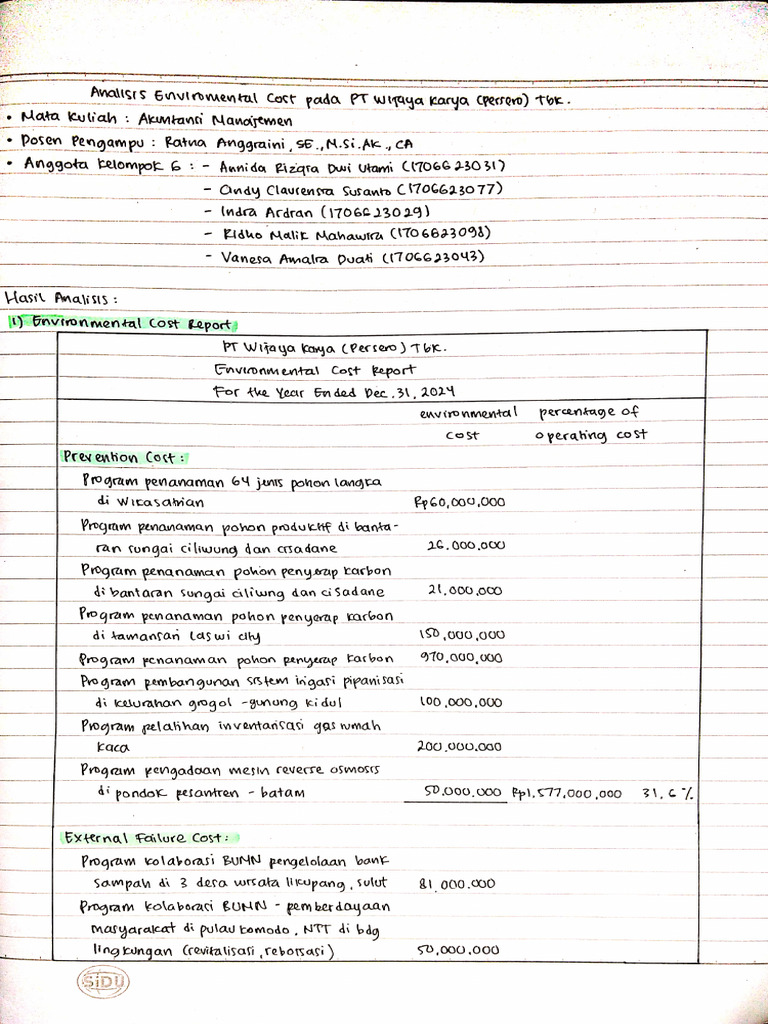 Analisis Enviromental Cost pada PT Wijaya Karya (Persero) Tbk.
• Mata Kuliah : Akuntansi Manajemen
• Dosen Pengampu : Ratna Anggraini, SE., M.Si.Ak., CA
• Anggota Kelompok 6 : - Annida Rizqra Dwi Utami (1706623031)
- Cindy Claurensia Susanto (1706623077)
- Indra Ardian (1706623029)
- Ridho Malik Mahawira (1706623098)
- Vanesa Amalia Duati (1706623043)
Hasil Analisis :
1) Environmental Cost Report
PT Wijaya Karya (Persero) Tbk.
Environmental Cost Report
For the Year Ended Dec. 31, 2024
environmental percentage of
cost operating cost
Prevention Cost :
Program penanaman 64 jenis pohon langka
di Wikasatrian Rp60,000,000
Program penanaman pohon produktif di banta-
ran sungai ciliwung dan cisadane 26.000.000
Program penanaman pohon penyerap karbon
di bantaran sungai ciliung dan cisadane 21.000.000
Program penanaman pohon penyerap karbon
di tamansari laswi city 150,000,000
Program penanaman pohon penyerap karbon 970,000,000
Program pembangunan sistem irigasi pipanisasi
di kelurahan grogol - gunung kidul 100,000,000
Program pelatihan inventarisasi gas rumah
kaca 200.000.000
Program pengadaan mesin reverse osmosis
di pondok pesantren - batam 50.000.000 Rp1.577,000,000 31.6 %
External Failure Cost :
Program kolaborasi BUMN pengelolaan bank
sampah di 3 desa wisata likupang, sulut 81.000.000
Program kolaborasi BUMN - pemberdayaan
masyarakat di pulau komodo, NTT di bdg
lingkungan (revitalisasi, reboisasi) 50,000,000
SiDU